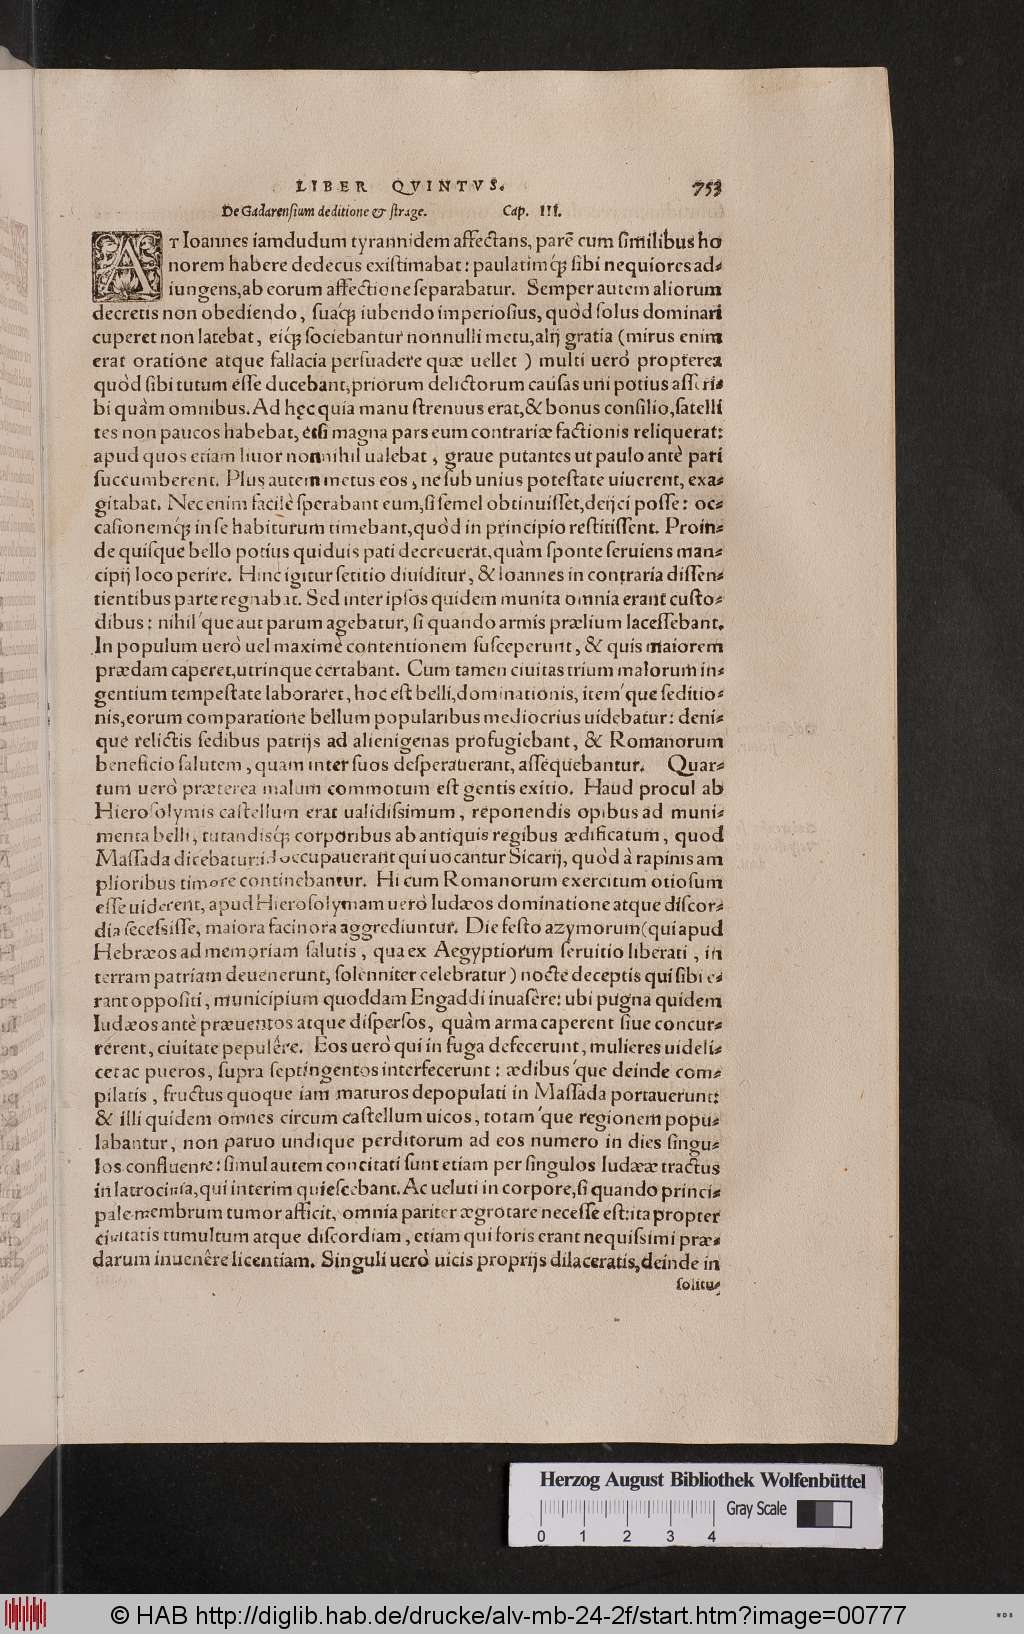 LIBER QVINTVS. 753
De Gadarensium deditione & strage. Cap. III.
AT Ioannes iamdudum tyrannidem affectans, parē cum similibus ho
norem habere dedecus existimabat: paulatimq́; sibi nequiores ad-
iungens, ab eorum affectione separabatur. Semper autem aliorum
decretis non obediendo, suaq́; iubendo imperiosius, quòd solus dominari
cuperet non latebat, eiq́; sociebantur nonnulli metu, alij gratia (mirus enim
erat oratione atque fallacia persuadere quæ uellet) multi uerò propterea
quòd sibi tutum esse ducebant, priorum delictorum causas uni potius ascri-
bi quàm omnibus. Ad hęc quia manu strenuus erat, & bonus consilio, satelli
tes non paucos habebat, etsi magna pars eum contrariæ factionis reliquerat:
apud quos etiam liuor nonnihil ualebat, graue putantes ut paulo antè pari
succumberent. Plus autem metus eos, ne sub unius potestate uiuerent, exa-
gitabat. Nec enim facilè sperabant eum, si semel obtinuisset, deijci posse: oc-
casionemq́; in se habiturum timebant, quòd in principio restitissent. Proin-
de quisque bello potius quiduis pati decreuerat, quàm sponte seruiens man-
cipij loco perire. Hinc igitur seditio diuiditur, & Ioannes in contraria dissen-
tientibus parte regnabat. Sed inter ipsos quidem munita omnia erant custo-
dibus: nihil'que aut parum agebatur, si quando armis prælium lacessebant.
In populum uerò uel maximè contentionem susceperunt, & quis maiorem
prædam caperet, utrinque certabant. Cum tamen ciuitas trium malorum in-
gentium tempestate laboraret, hoc est belli, dominationis, item'que seditio-
nis, eorum comparatione bellum popularibus mediocrius uidebatur: deni-
que relictis sedibus patrijs ad alienigenas profugiebant, & Romanorum
beneficio salutem, quam inter suos desperauerant, assequebantur. Quar-
tum uerò præterea malum commotum est gentis exitio. Haud procul ab
Hierosolymis castellum erat ualidissimum, reponendis opibus ad muni-
menta belli, tutandisq́; corporibus ab antiquis regibus ædificatum, quod
Massada dicebatur: id occupauerant qui uocantur Sicarij, quòd à rapinis am
plioribus timore continebantur. Hi cum Romanorum exercitum otiosum
esse uiderent, apud Hierosolymam uerò Iudæos dominatione atque discor-
dia secessisse, maiora facinora aggrediuntur. Die festo azymorum (qui apud
Hebræos ad memoriam salutis, qua ex Aegyptiorum seruitio liberati, in
terram patriam deuenerunt, solenniter celebratur) nocte deceptis qui sibi e-
rant oppositi, municipium quoddam Engaddi inuasêre: ubi pugna quidem
Iudæos antè præuentos atque dispersos, quàm arma caperent siue concur-
rerent, ciuitate pepulêre. Eos uerò qui in fuga defecerunt, mulieres uideli-
cet ac pueros, supra septingentos interfecerunt: ædibus'que deinde com-
pilatis, fructus quoque iam maturos depopulati in Massada portauerunt:
& illi quidem omnes circum castellum uicos, totam'que regionem popu-
labantur, non paruo undique perditorum ad eos numero in dies singu-
los confluente: simul autem concitati sunt etiam per singulos Iudææ tractus
in latrocinia, qui interim quiescebant. Ac ueluti in corpore, si quando princi-
pale membrum tumor afficit, omnia pariter ægrotare necesse est: ita propter
ciuitatis tumultum atque discordiam, etiam qui foris erant nequissimi præ-
darum inuenêre licentiam. Singuli uerò uicis proprijs dilaceratis, deinde in
solitu-
Herzog August Bibliothek Wolfenbüttel
Gray Scale
0 1 2 3 4
© HAB http://diglib.hab.de/drucke/alv-mb-24-2f/start.htm?image=00777